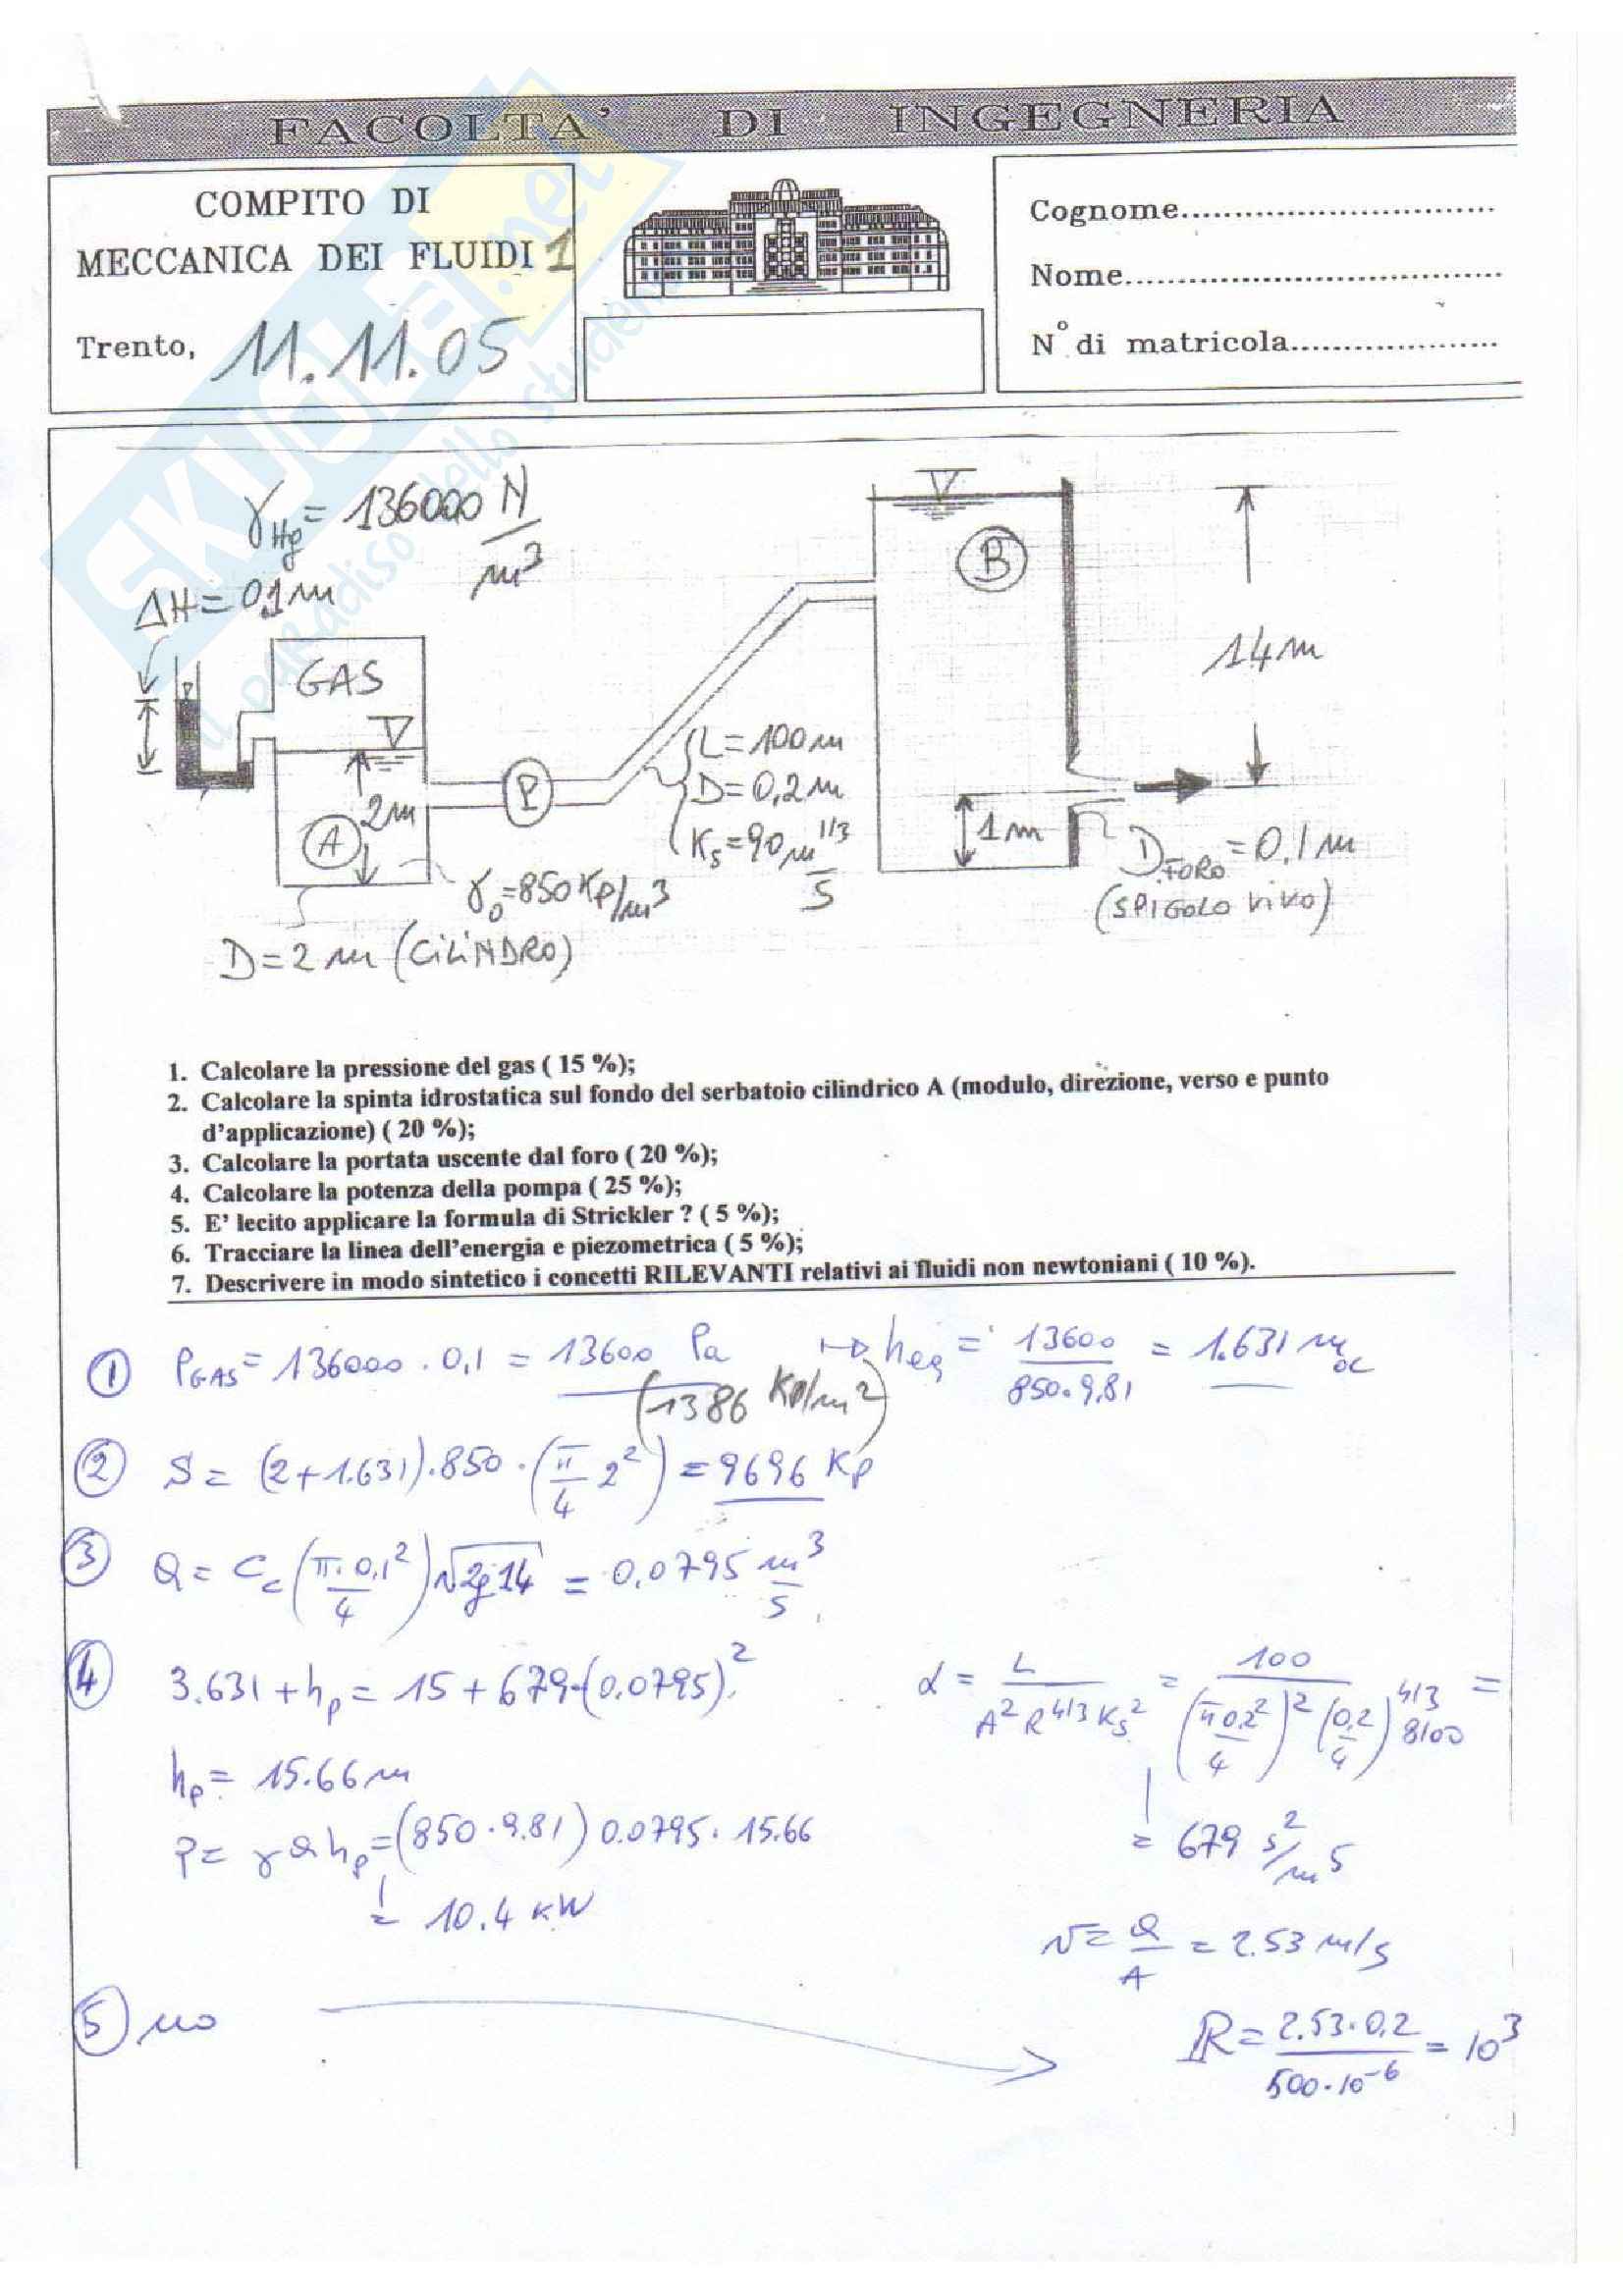 FACOLTA' DI INGEGNERIA
COMPITO DI
MECCANICA DEI FLUIDI 1
Trento, 11.11.05
Cognome..............................
Nome....................................
N° di matricola....................
SKUOLA.net
il paradiso dello studente
γHg = 136000 N/m³
ΔH = 0,1 m
GAS
B
14 m
A
2m
P
L = 100 m
D = 0,2 m
Ks = 90 m^1/3/s
1 m
D FORO = 0,1 m
(SPIGOLO VIVO)
γo = 850 Kp/m³
D = 2 m (CILINDRO)
1. Calcolare la pressione del gas ( 15 %);
2. Calcolare la spinta idrostatica sul fondo del serbatoio cilindrico A (modulo, direzione, verso e punto
d'applicazione) ( 20 %);
3. Calcolare la portata uscente dal foro ( 20 %);
4. Calcolare la potenza della pompa ( 25 %);
5. E' lecito applicare la formula di Strickler ? ( 5 %);
6. Tracciare la linea dell'energia e piezometrica ( 5 %);
7. Descrivere in modo sintetico i concetti RILEVANTI relativi ai fluidi non newtoniani ( 10 %).
① PGAS = 136000 · 0,1 = 13600 Pa ↦ heq = 13600 / 850·9,81 = 1.631 m
(1386 Kp/m²)
② S = (2+1.631)·850·(π/4 2²) = 9696 Kp
③ Q = Cc (π·0,1²/4) √2g14 = 0,0795 m³/s
④ 3.631 + hp = 15 + 679·(0.0795)²
α = L / A² R^4/3 Ks² = 100 / (π0,2²/4)² (0,2/4)^4/3 8100 =
= 679 s²/m5
hp = 15.66 m
P = γQhp = (850·9.81) 0.0795 · 15.66
= 10.4 KW
v = Q/A = 2.53 m/s
⑤ no
R = 2.53·0,2 / 500·10^-6 = 10³